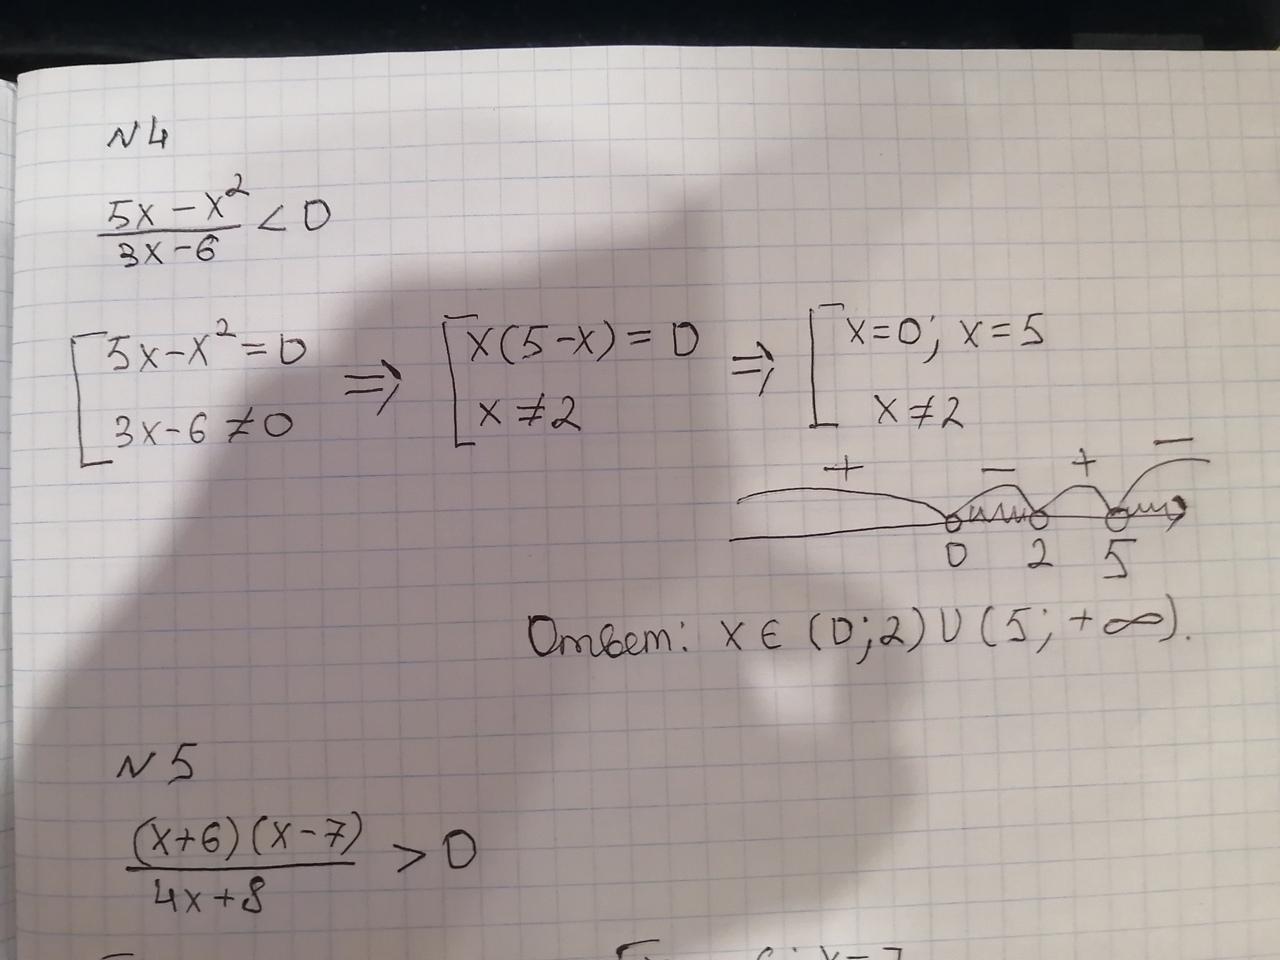 N4
(5x - x²)/(3x - 6) < 0
[5x - x² = 0 => [x(5 - x) = 0 => [x = 0; x = 5
3x - 6 ≠ 0 x ≠ 2 x ≠ 2
+ − + −
0 2 5
Ответ: x ∈ (0; 2) ∪ (5; +∞).
N5
((x+6)(x-7))/(4x+8) > 0